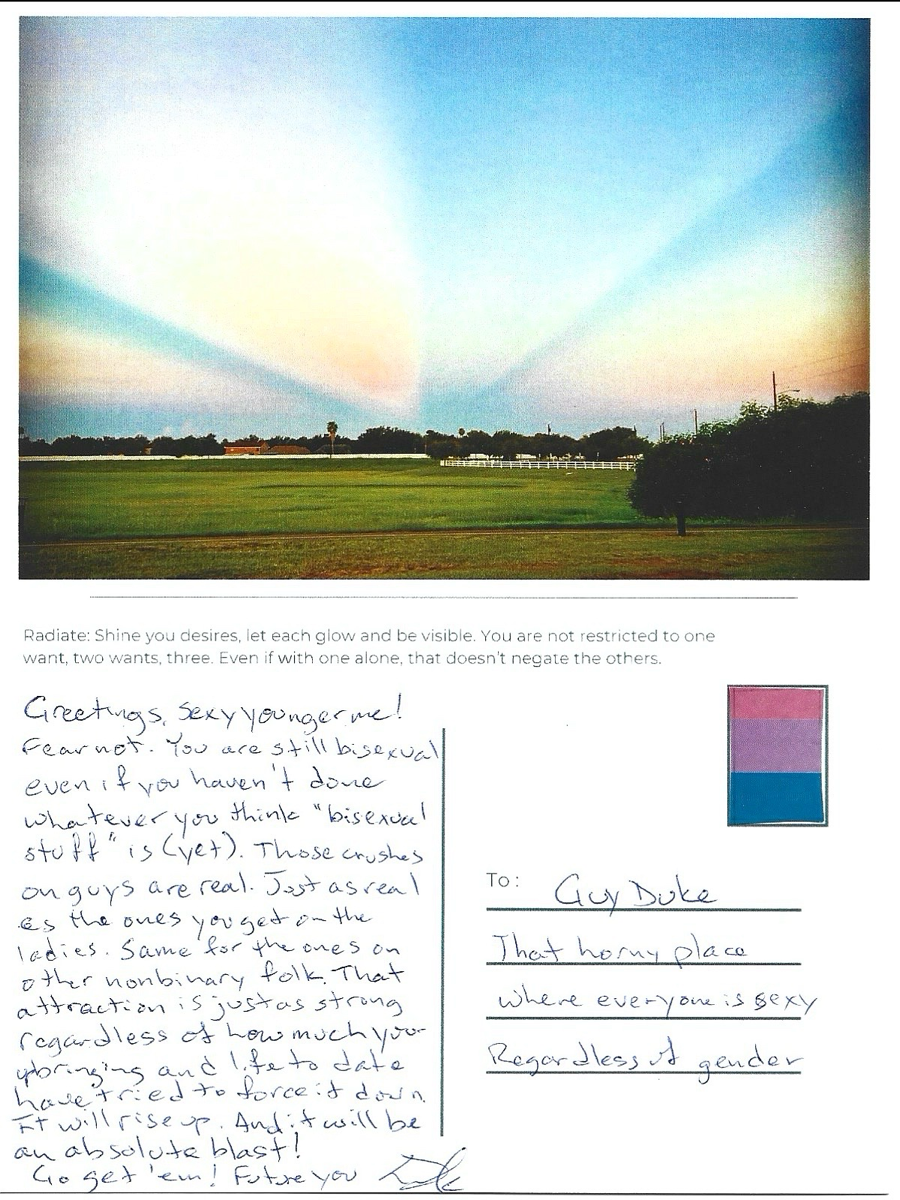 Radiate: Shine you desires, let each glow and be visible. You are not restricted to one
want, two wants, three. Even if with one alone, that doesn't negate the others.
Greetings, sexy younger me!
Fear not. You are still bisexual
even if you haven't done
whatever you think "bisexual
stuff" is (yet). Those crushes
on guys are real. Just as real
as the ones you get on the
ladies. Same for the ones on
other nonbinary folk. That
attraction is just as strong
regardless of how much your
upbringing and life to date
have tried to force it down.
It will rise up. And it will be
an absolute blast!
Go get 'em! Future you
To: Guy Duke
That horny place
where everyone is sexy
Regardless of gender